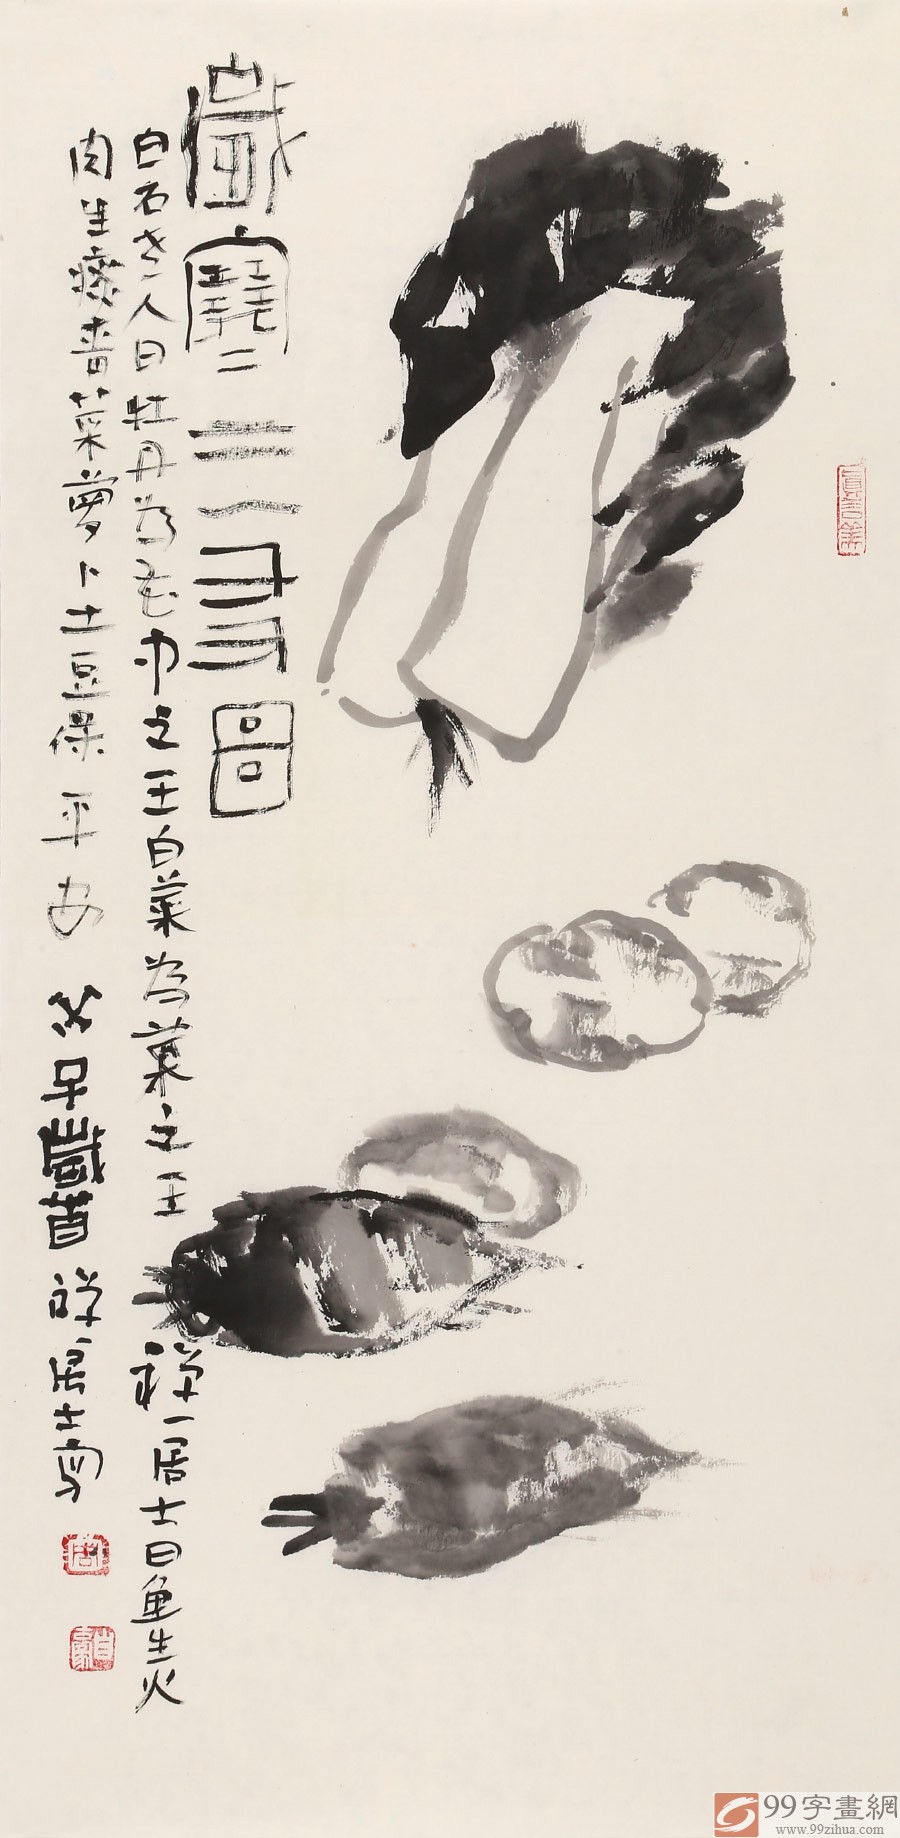 歲寒三友圖
白石老人曰牡丹為花中之王白菜為菜之王 禅一居士曰鱼生火
肉生痰青菜萝卜土豆保平安 子歲首 禅居士寫
99字畫網
www.99zihua.com